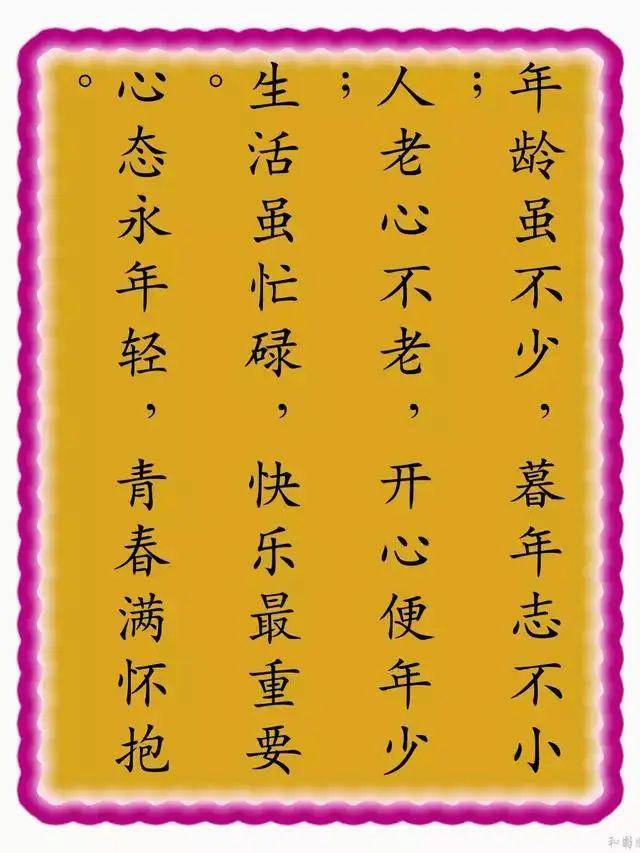 年龄虽不少，暮年志不小
；
人老心不老，开心便年少
；
生活虽忙碌，快乐最重要
。
心态永年轻，青春满怀抱
。